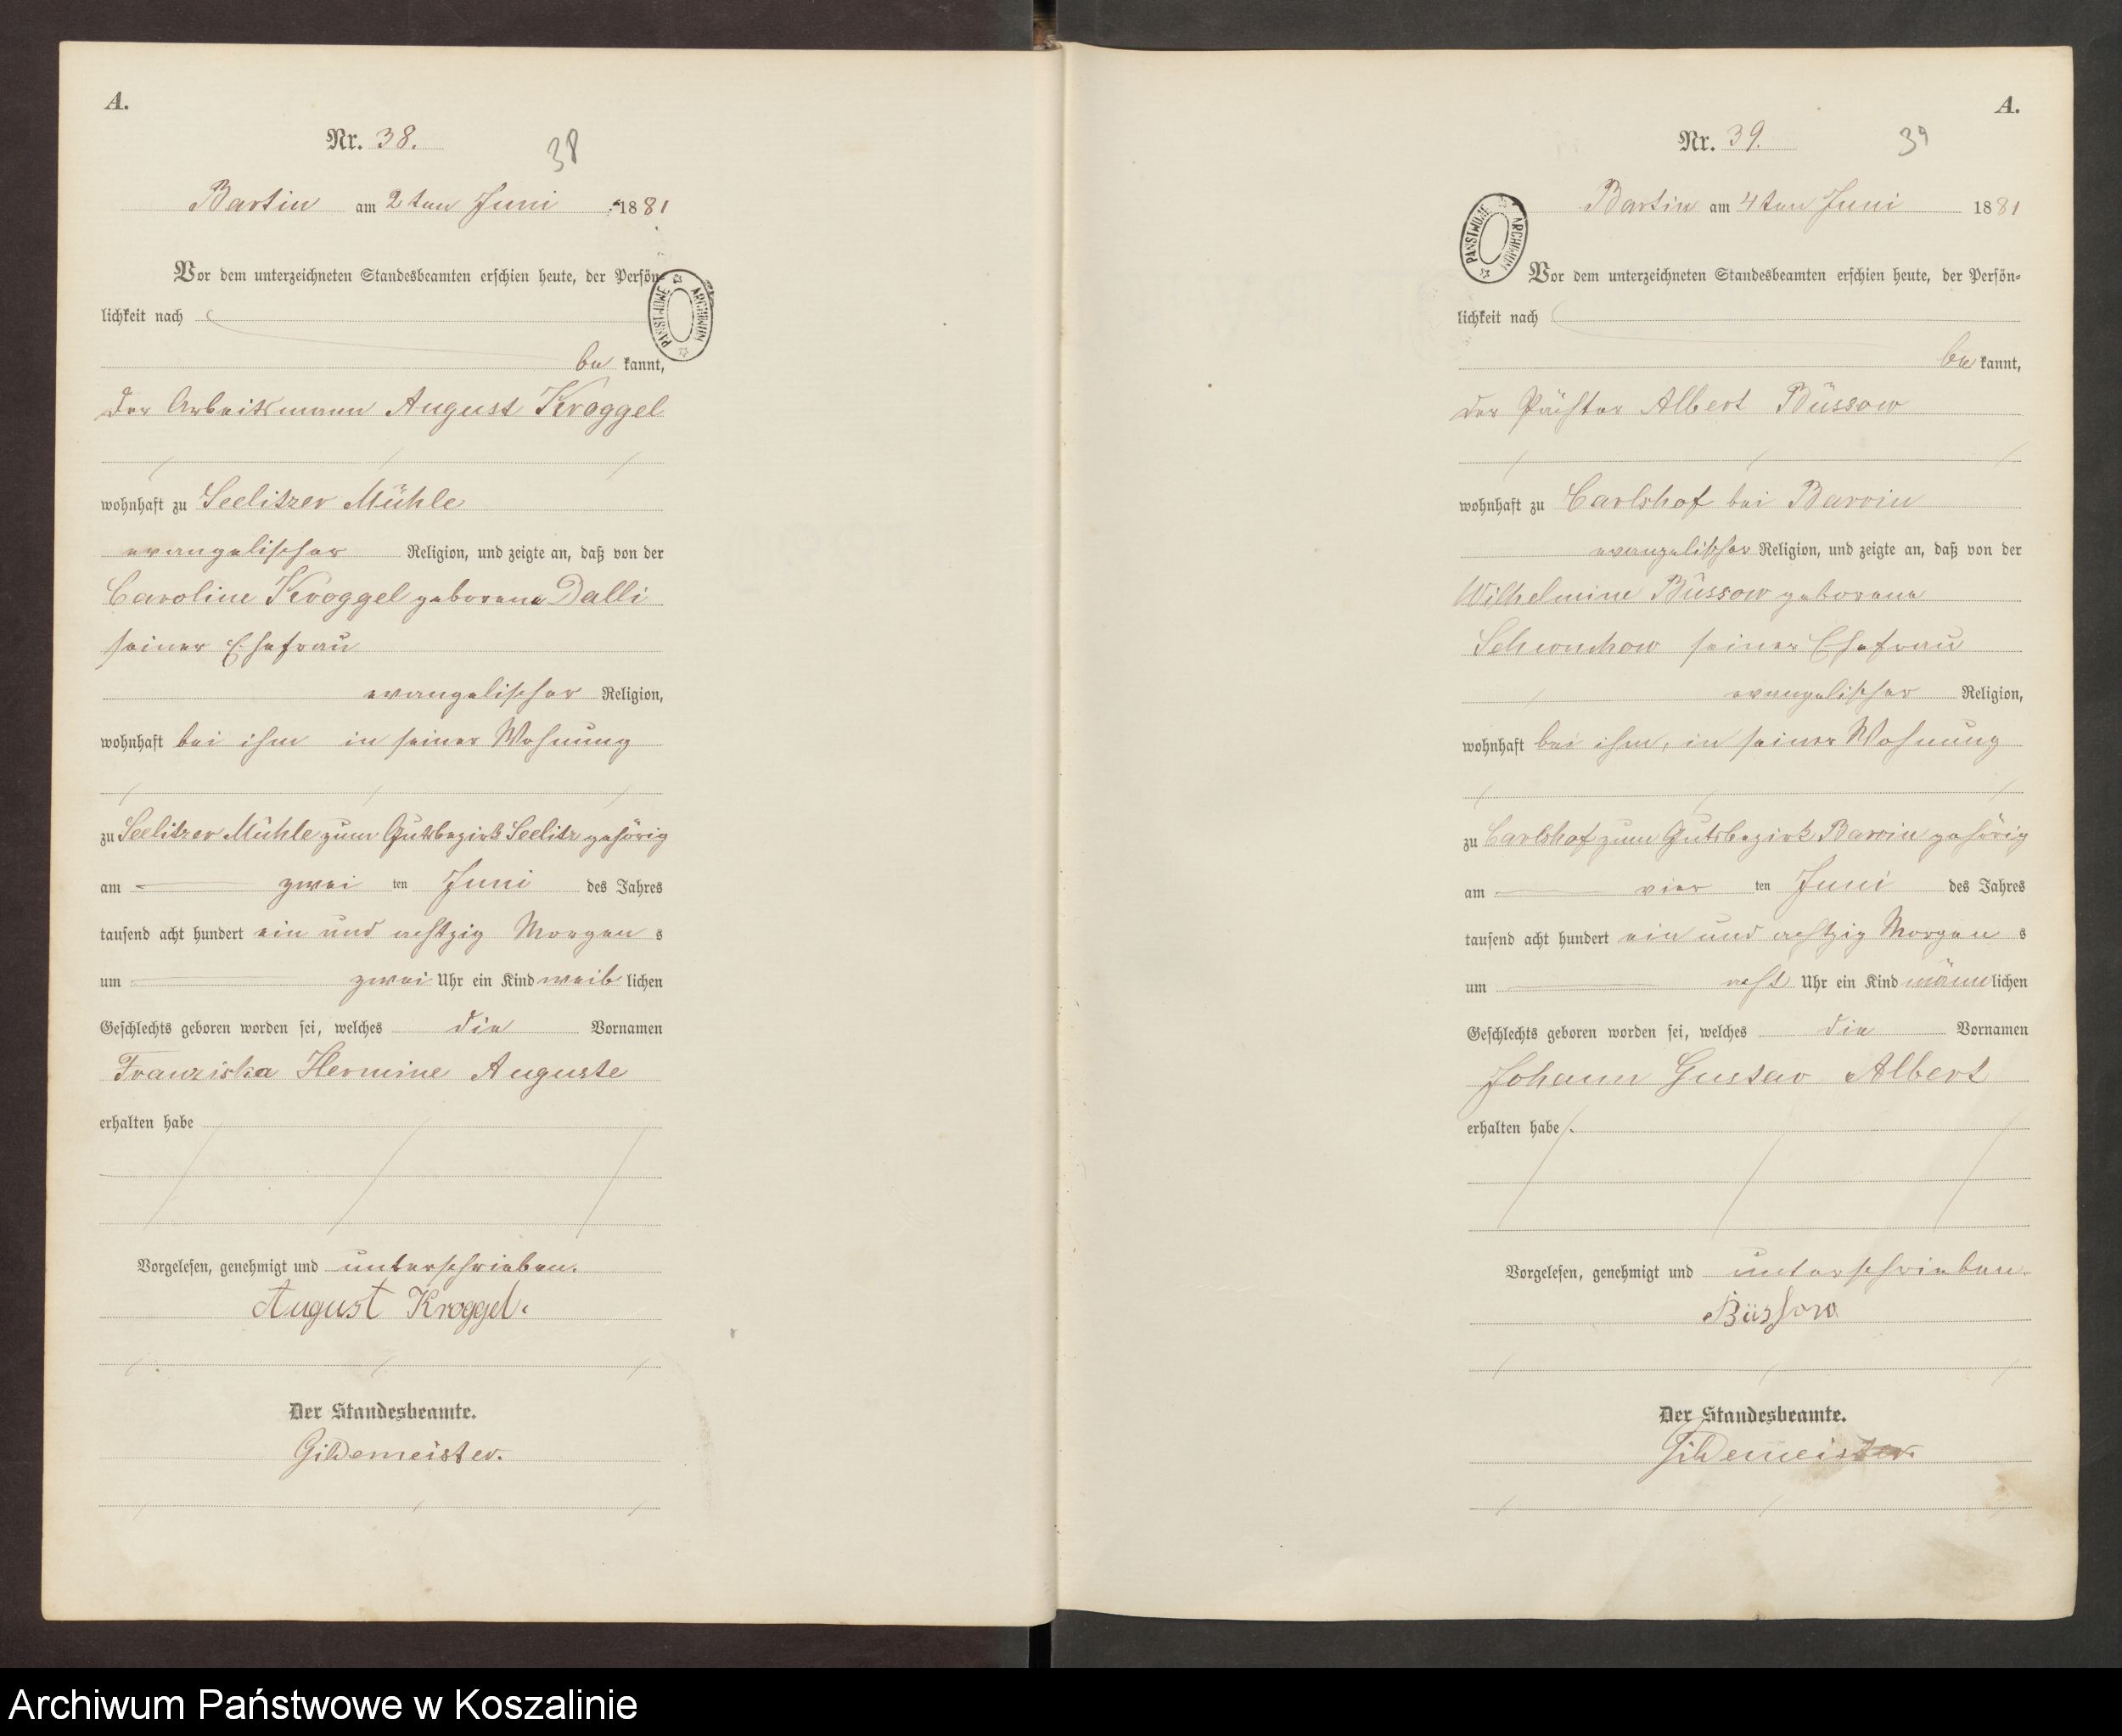 A.
Nr. 38.
38
Bartin am 2ten Juni 1881
Vor dem unterzeichneten Standesbeamten erschien heute, der Persön-
lichkeit nach
be kannt,
der Arbeitsmann August Kroggel
wohnhaft zu Seelitzer Mühle
evangelischer Religion, und zeigte an, daß von der
Caroline Kroggel geborene Dalli
seiner Ehefrau
evangelischer Religion,
wohnhaft bei ihm in seiner Wohnung
zu Seelitzer Mühle zum Gutsbezirk Seelitz gehörig
am zwei ten Juni des Jahres
tausend acht hundert ein und achtzig Morgen s
um zwei Uhr ein Kind weib lichen
Geschlechts geboren worden sei, welches die Vornamen
Franziska Hermine Auguste
erhalten habe
Vorgelesen, genehmigt und unterschrieben.
August Kroggel.
Der Standesbeamte.
Gildemeister.
PAŃSTWOWE ARCHIWUM
A.
Nr. 39.
39
Bartin am 4ten Juni 1881
PAŃSTWOWE ARCHIWUM
Vor dem unterzeichneten Standesbeamten erschien heute, der Persön-
lichkeit nach
be kannt,
der Pächter Albert Büssow
wohnhaft zu Carlshof bei Barvin
evangelischer Religion, und zeigte an, daß von der
Wilhelmine Büssow geborene
seiner Ehefrau
evangelischer Religion,
wohnhaft bei ihm, in seiner Wohnung
zu Carlshof zum Gutsbezirk Barvin gehörig
am vier ten Juni des Jahres
tausend acht hundert ein und achtzig Morgen s
um acht Uhr ein Kind männ lichen
Geschlechts geboren worden sei, welches die Vornamen
Johann Gustav Albert
erhalten habe.
Vorgelesen, genehmigt und unterschrieben.
Büssow
Der Standesbeamte.
Gildemeister.
Archiwum Państwowe w Koszalinie